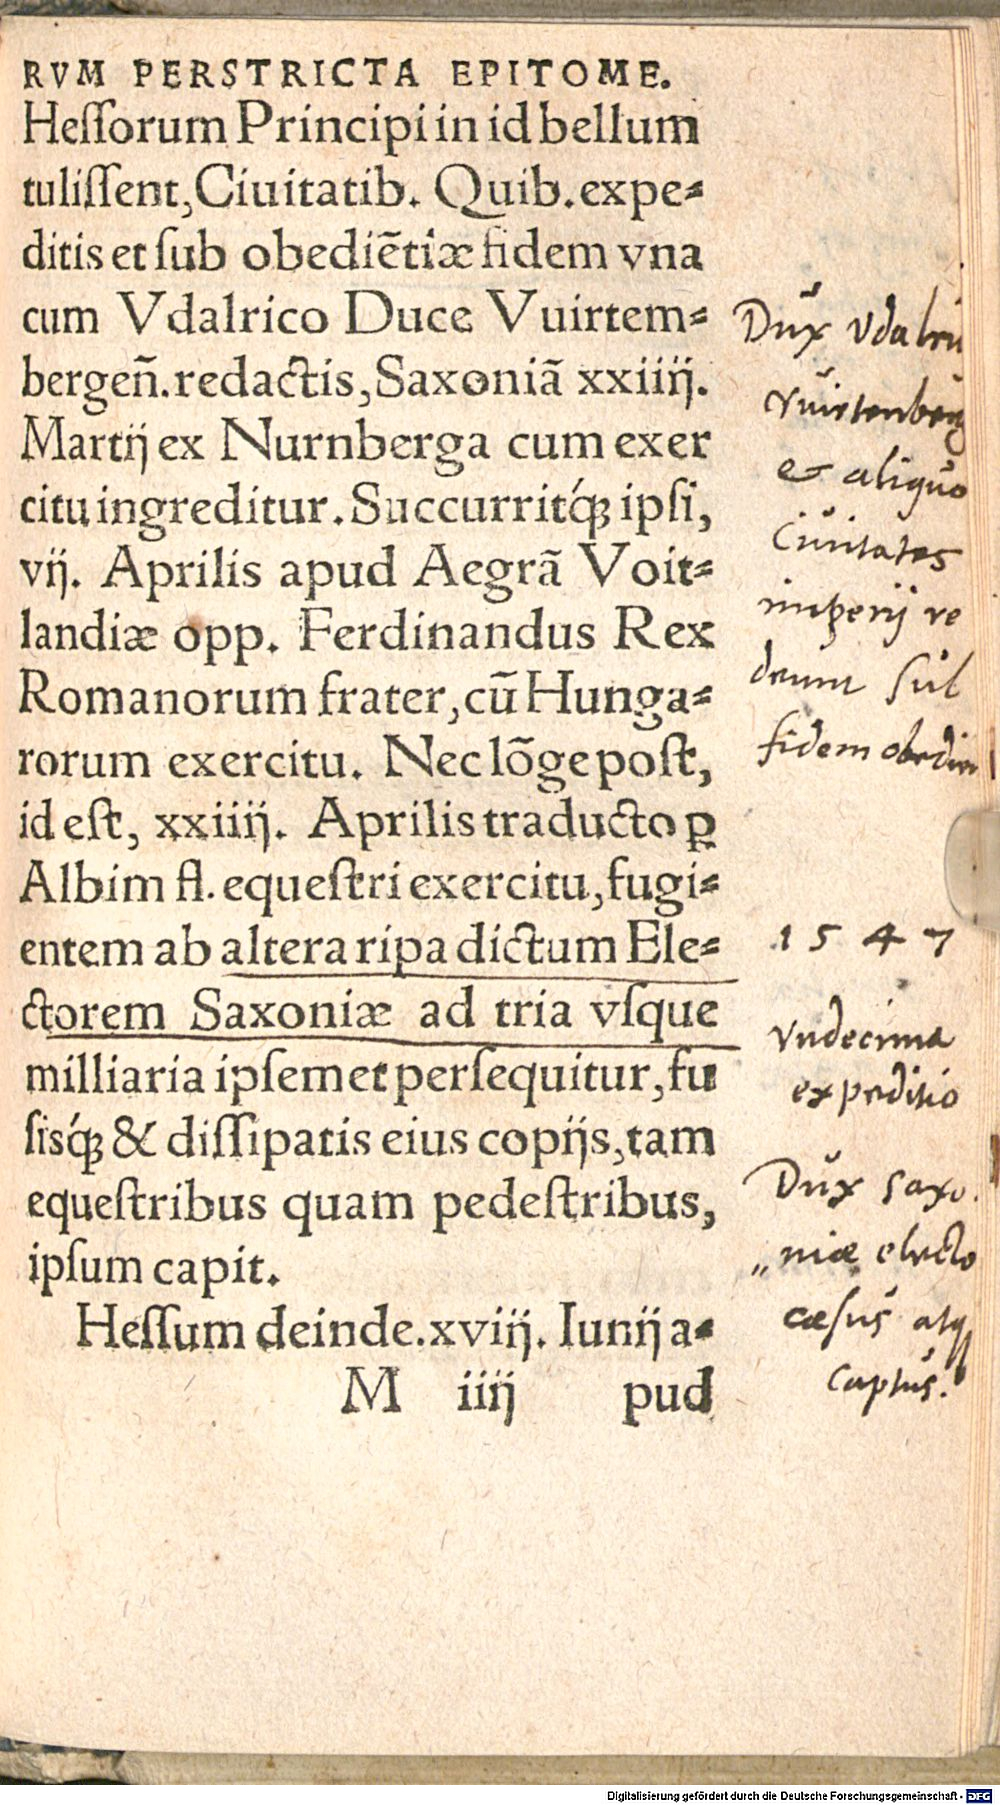 RVM PERSTRICTA EPITOME.
Heſſorum Principi in id bellum
tuliſſent, Ciuitatib. Quib. expe⸗
ditis et ſub obediẽtiæ fidem vna
cum Vdalrico Duce Vuirtem⸗
bergeñ. redactis, Saxoniã xxiiij.
Martij ex Nurnberga cum exer
citu ingreditur. Succurritq́; ipſi,
vij. Aprilis apud Aegrã Voit⸗
landiæ opp. Ferdinandus Rex
Romanorum frater, cũ Hunga⸗
rorum exercitu. Nec lõge poſt,
id eſt, xxiiij. Aprilis traducto ꝑ
Albim fl. equeſtri exercitu, fugi⸗
entem ab altera ripa dictum Ele⸗
ctorem Saxoniæ ad tria vſque
milliaria ipſemet perſequitur, fu
ſisq́; & diſſipatis eius copijs, tam
equeſtribus quam pedeſtribus,
ipſum capit.
Heſſum deinde. xviij. Iunij a⸗
M iiij pud
Dux Vdalri
Vuirtenberg
et aliquo
Ciuitates
imperij re
deunt sub
fidem obedien
1547
Vndecima
expeditio
Dux saxo
„niæ electo
cæsus atq
captus.
Digitalisierung gefördert durch die Deutsche Forschungsgemeinschaft - DFG